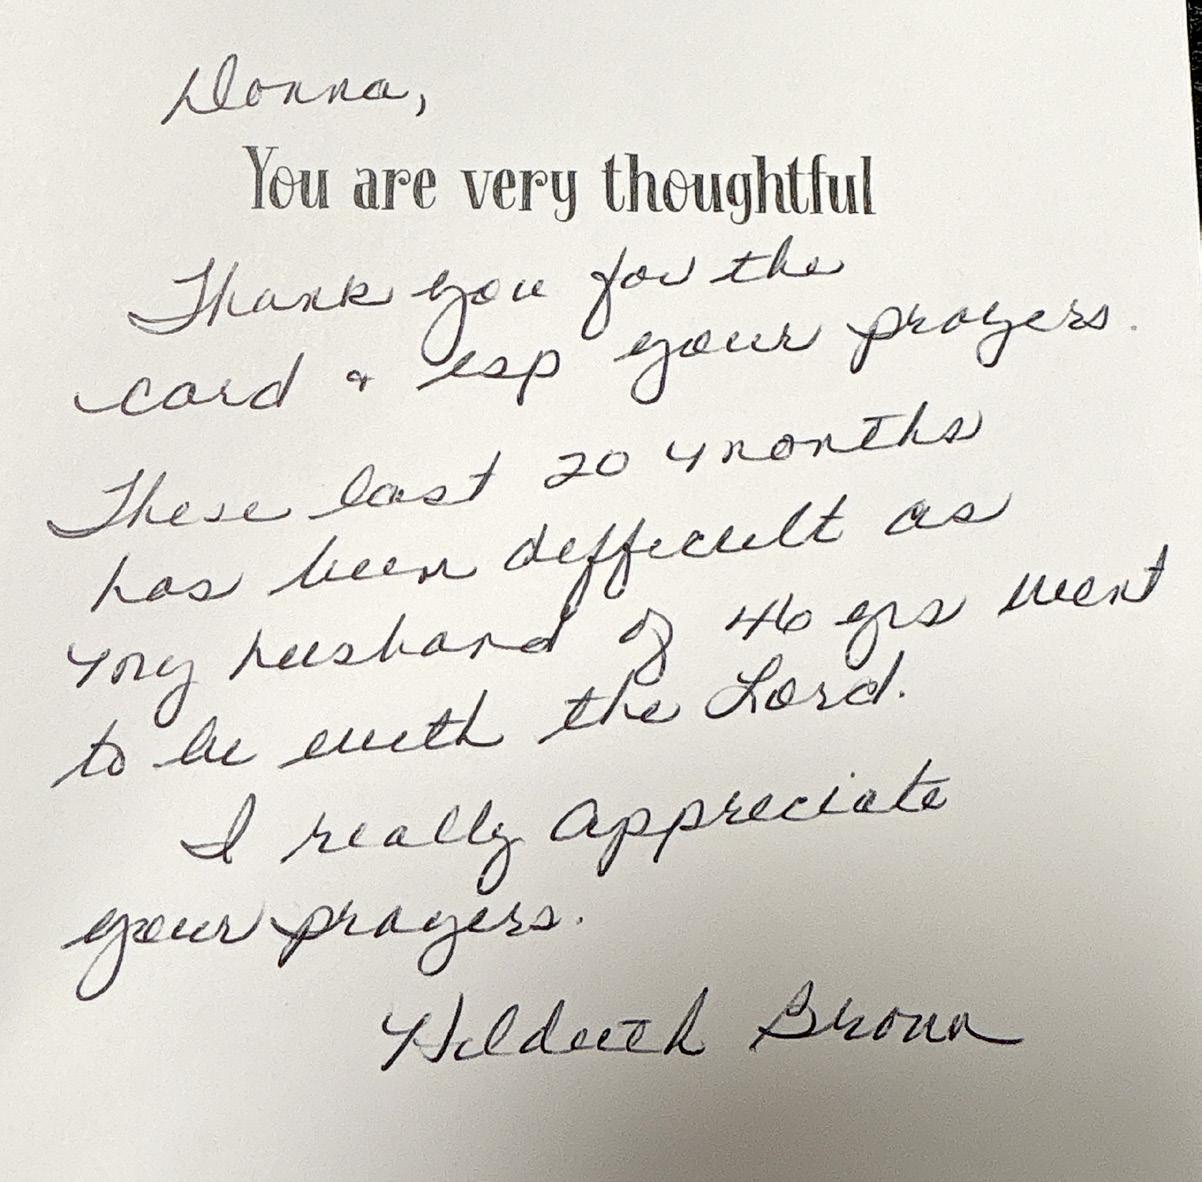 Donna,
You are very thoughtful
Thank you for the
card & esp your prayers.
These last 20 months
has been difficult as
my husband of 46 yrs went
to be with the Lord.
I really appreciate
your prayers.
Hildreth Brown